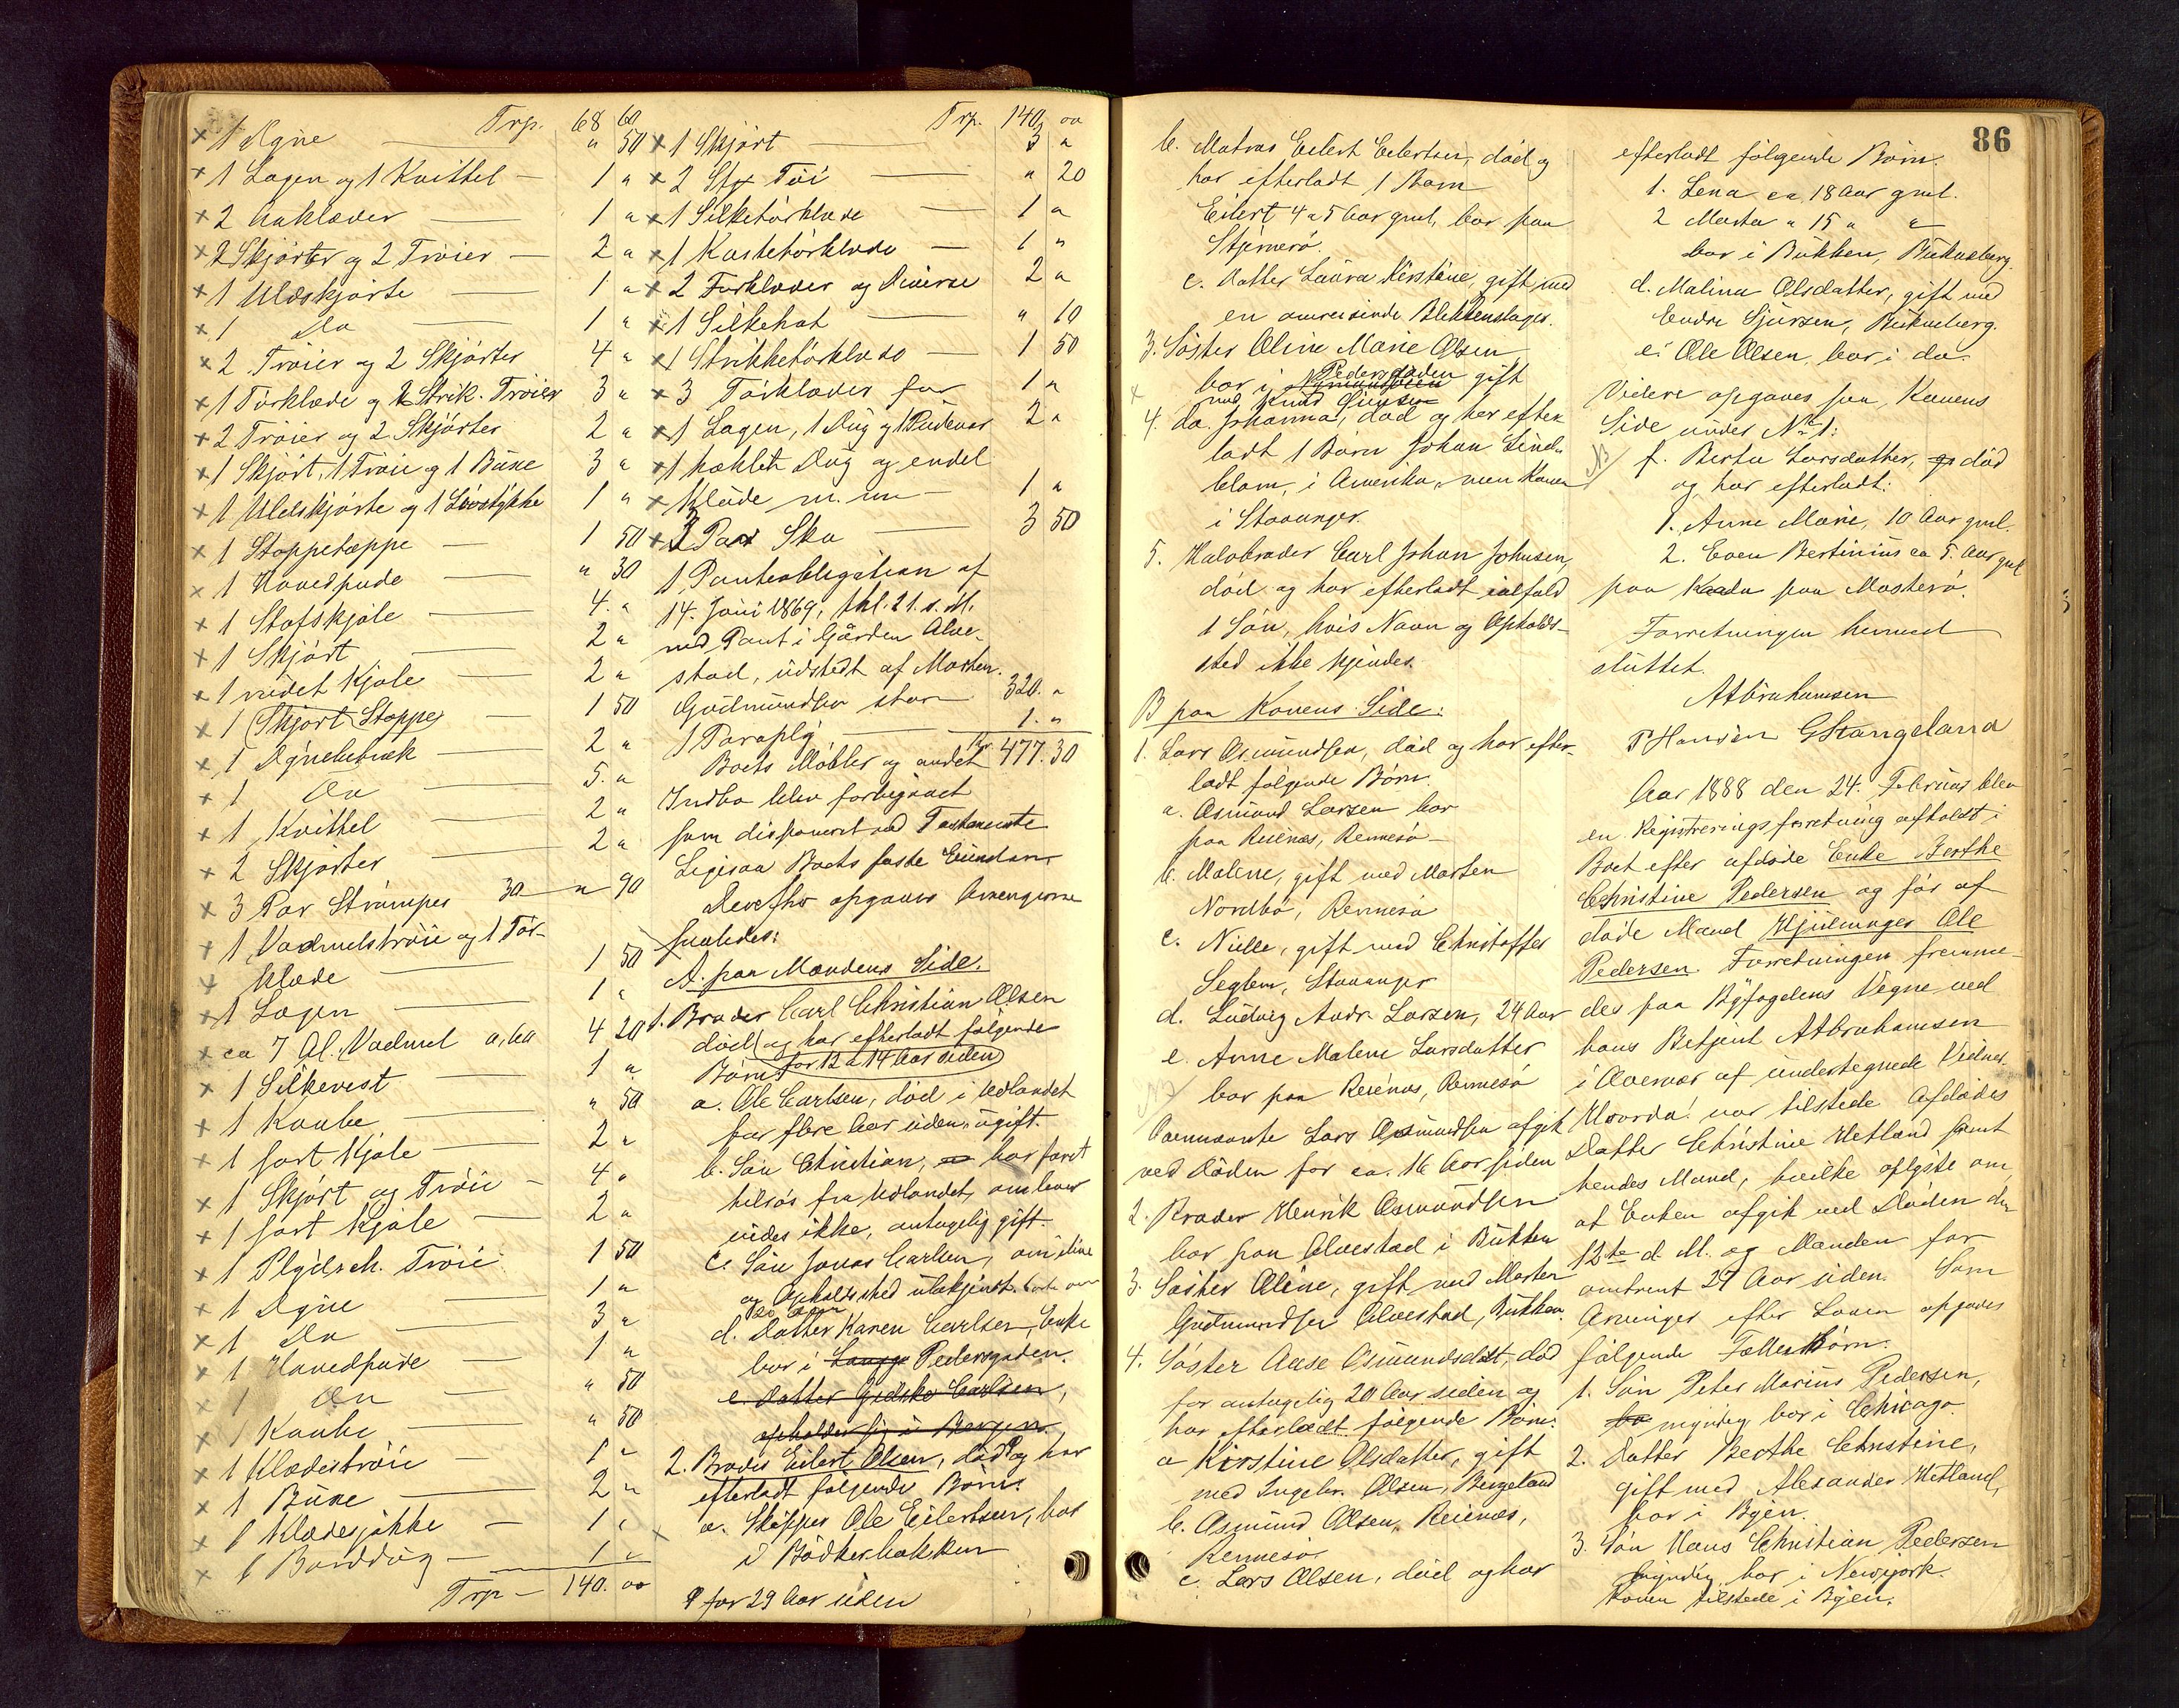 Trp. 68 60
× 1 Dyne — " 50
× 1 Lagen og 1 Kvittel — 1 "
× 2 Aaklæder — 1 "
× 2 Skjørter og 2 Trøier — 2 "
× 1 Uldskjorte — 1 "
× 1 Do — 1 "
× 2 Trøier og 2 Skjørter 4 "
× 1 Tørklæde og 2 Strik. Trøier 3 "
× 2 Trøier og 2 Skjørter 2 "
× 1 Skjørt, 1 Trøie og 1 Buxe 3 "
× 1 Uldskjorte og 1 Livstykke 1 "
× 1 Stoppetæppe — 1 50
× 1 Hovedpude — " 30
× 1 Stofskjole — 4. "
× 1 Skjørt — 2 "
× 1 vudet Kjole — 2 "
× 1 Skjørt (Stoppe) — 1 50
× 1 Dynebebræk — 2 "
× 1 Do — 5. "
× 1 Kvittel — 2 "
× 2 Skjørter — 2 "
× 3 Par Strømper 30 — " 90
× 1 Vadmelstrøie og 1 Tør-
× klæde — 1 50
× 1 Lagen — 1 "
× ca 7 Al. Vadmel a, 60 4 20
× 1 Silkevest — 1 "
× 1 Kaabe — " 50
× 1 sort Kjole — 2 "
× 1 Skjørt og Trøie — 4 "
× 1 sort Kjole — 2 "
× 1 Plydsch. Trøie 1 50
× 1 Dyne — 1 "
× 1 Do — 3 "
× 1 Hovedpude — 1 "
× 1 Do — " 50
× 1 Kaabe — " 50
× 1 Klædestrøie — 1 "
× 1 Buxe — 2 "
× 1 Klædesjakke — 1 "
× 1 Borddug — 1 "
Trp — 140. 00
Trp. 140, 00
× 1 Skjørt — 3 "
× 2 Stk Tøi — " 20
× 1 Silketørklæde — 1 "
× 1 Kastetørklæde — 1 "
× 2 Forklæder og Diverse 2 "
× 1 Silkehat — " 60
× 1 Strikketørklæde — 1 50
× 3 Tørklæder for 1 "
× 1 Lagen, 1 Dug og 1 Pudevar 2 "
× 1 hæklet Dug og endel
× Klude m. m — 1 "
× 3 Par Sko — 3 50
1 Panteobligation af
14. Juni 1869, thl. 21. s. M.
med Pant i Gården Alve-
stad, udstedt af Morten
Gudmundsen stor 320. "
1 Paraply — 1. "
Kr. 477. 30
Boets Møbler og andet
Indbo blev forbigaaet
som disponeret ved Testamente
Ligesaa Boets faste Eiendom
Derefter opgaves Arvingerne
saaledes:
A. paa Mandens Side.
1. Broder Carl Christian Olsen
død og har efterladt følgende
Børn (for 12 a 14 Aar siden)
a. Ole Carlsen, død i Udlandet
for flere Aar siden, ugift.
b. Søn Christian, har faret
tilsøs fra Udlandet, om lever
vides ikke, antagelig gift.
c. Søn Jonas Carlsen, om ilive
og Opholdssted ubekjendt.
d. Datter Karen Carlsen, Enke
bor i Langg Pedersgaden.
e. Datter Gidske Carlsen,
opholder sig i Bergen
2. Broder Eilert Olsen, død og har
efterladt følgende Børn:
a. Skipper Ole Eilertsen, bor
× i Bødkerbakken
for 29 Aar siden
86
b. Matros Eilert Eilertsen, død og
har efterladt 1 Barn
Eilert 4 a 5 Aar gml, bor paa
Stjernerø.
c. Datter Laura Kirstine, gift med
en omreisende Blikkenslager.
3. Søster Oline Marie Olsen
bor i Pedersgaden gift
med Knud
4. do. Johanna, død og har efter-
ladt 1 Barn Johan Lind-
blom, i Amerika, men Konen
i Stavanger.
5. Halvbroder Carl Johan Johnsen,
død og har efterladt ialfald
1 Søn, hvis Navn og Opholds-
sted ikke kjendes.
B paa Konens Side:
1. Lars Osmundsen, død og har efter-
ladt følgende Børn.
a. Osmund Larsen bor
paa Reienæs, Rennesø
b. Malene, gift med Morten
Nordbø, Rennesø
c. Nille, gift med Christoffer
Seglem, Stavanger
d. Ludvig Andr. Larsen, 24 Aar
e. Anne Malene Larsdatter
bor paa Reienæs, Rennesø
Ovennævnte Lars Osmundsen afgik
ved Døden for ca. 16 Aar siden
2. Broder Henrik Osmundsen
bor paa Alvestad i Bukken
3. Søster Oline, gift med Morten
Gudmundsen Alvestad, Bukken.
4. Søster Aase Osmundsdat, død
for antagelig 20 Aar siden og
har efterladt følgende Børn:
a Kirstine Olsdatter, gift
med Ingebr. Olsen, Bergeland
b. Osmund Olsen, Reienæs,
Rennesø
c. Lars Olsen, død og har
efterladt følgende Børn:
1. Lena ca 18 Aar gml.
2 Marta " 15 " "
bor i Bukken, Bukkeberg.
d. Malina Olsdatter, gift med
Endre Sjursen, Bukkeberg.
e. Ole Olsen bor i do.
Videre opgaves paa Konens
Side under No 1:
NB f. Berta Larsdatter, død
og har efterladt:
1. Anne Marie, 10 Aar gml.
2. Even Bertinius ca 5. Aar gml
paa Kaada paa Mosterø.
Forretningen hermed
sluttet.
A Abrahamsen
P Hansen G Stangeland
Aar 1888 den 24. Februar blev
en Registreringsforretning afholdt i
Boet efter afdøde Enke Berthe
Christine Pedersen og før af
døde Mand Hjulmager Ole
Pedersen. Forretningen fremme-
des paa Byfogdens Vegne ved
hans Betjent A Abrahamsen
i Overvær af undertegnede Vidner.
Hvorda! var tilstede Afdødes
Datter Christine Hetland samt
hendes Mand, hvilke oplyste om,
at Enken afgik ved Døden den
12te d. M. og Manden for
omtrent 27 Aar siden. Som
Arvinger efter Loven opgaves
følgende Fælles Børn.
1. Søn Peter Marius Pedersen,
bo myndig bor i Chicago
2. Datter Berthe Christine,
gift med Alexander Hetland,
bor i Byen.
3. Søn Hans Christian Pedersen
myndig, bor i Newyork.
Konen tilstede i Byen.